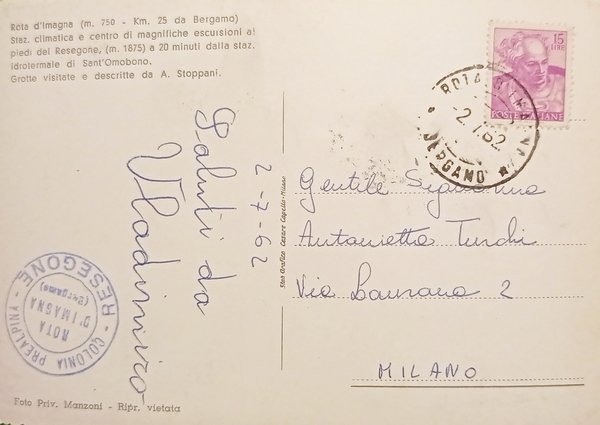 Rota d'Imagna (m. 750 - Km. 25 da Bergamo)
Staz. climatica e centro di magnifiche escursioni ai
piedi del Resegone, (m. 1875) a 20 minuti dalla staz.
idrotermale di Sant'Omobono.
Grotte visitate e descritte da A. Stoppani.
Saluti da
Vladimiro
2-7-62
COLONIA PREALPINA
RESEGONE
ROTA
D'IMAGNA
(Bergamo)
Foto Priv. Manzoni - Ripr. vietata
Stab Grafico Cesare Capello-Milano
15
LIRE
POSTE ITALIANE
ROTA D'IMAGNA
-2.7.62
BERGAMO
Gentile Signorina
Antonietta Turchi
Via 2
MILANO